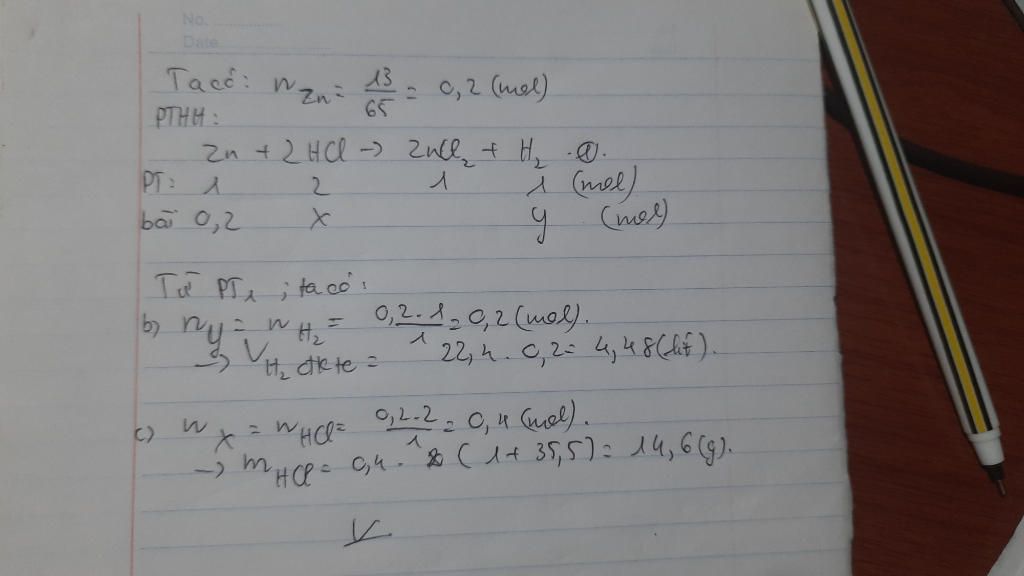 No. ............
Date ............
Ta có: nZn = 13/65 = 0,2 (mol)
PTHH:
Zn + 2HCl → ZnCl2 + H2 ①.
PT: 1 2 1 1 (mol)
bài 0,2 x y (mol)
Từ PT1 ; ta có:
b) ny = nH2 = 0,2.1/1 = 0,2 (mol).
→ VH2 đktc = 22,4 . 0,2 = 4,48 (lít).
c) nx = nHCl = 0,2.2/1 = 0,4 (mol).
→ mHCl = 0,4 . (1 + 35,5) = 14,6 (g).
V